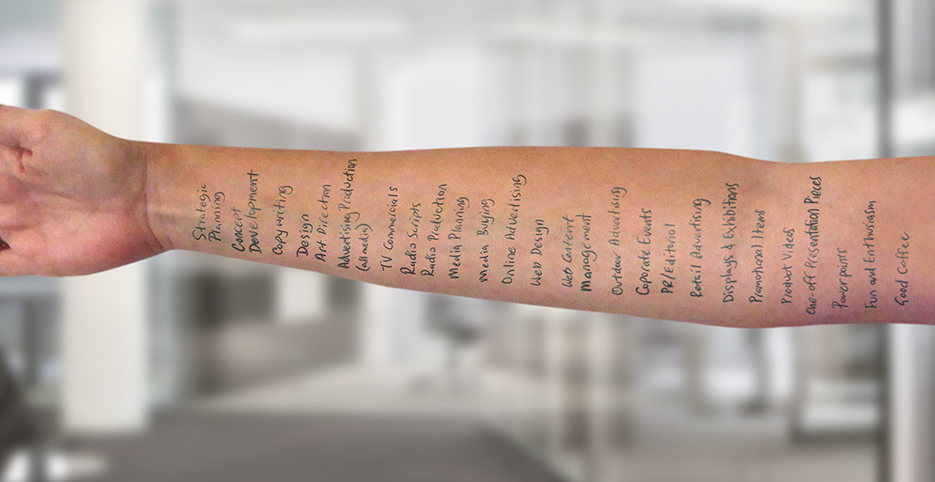 Strategic
Planning
Concept
Development
Copywriting
Design
Art Direction
Advertising Production
(all media)
TV Commercials
Radio Scripts
Radio Production
Media Planning
Media Buying
Online Advertising
Web Design
Web Content
Management
Outdoor Advertising
Coporate Events
PR/Editorial
Retail Advertising
Displays & Exhibitions
Promotional Items
Product Videos
One-off Presentation Pieces
Powerpoints
Fun and Enthusiasm
Good Coffee